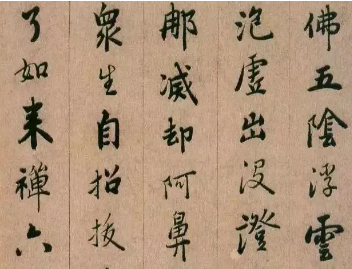 佛五陰浮雲
泡虛出沒證
那滅却阿鼻
衆生自招拔
了如来禪六